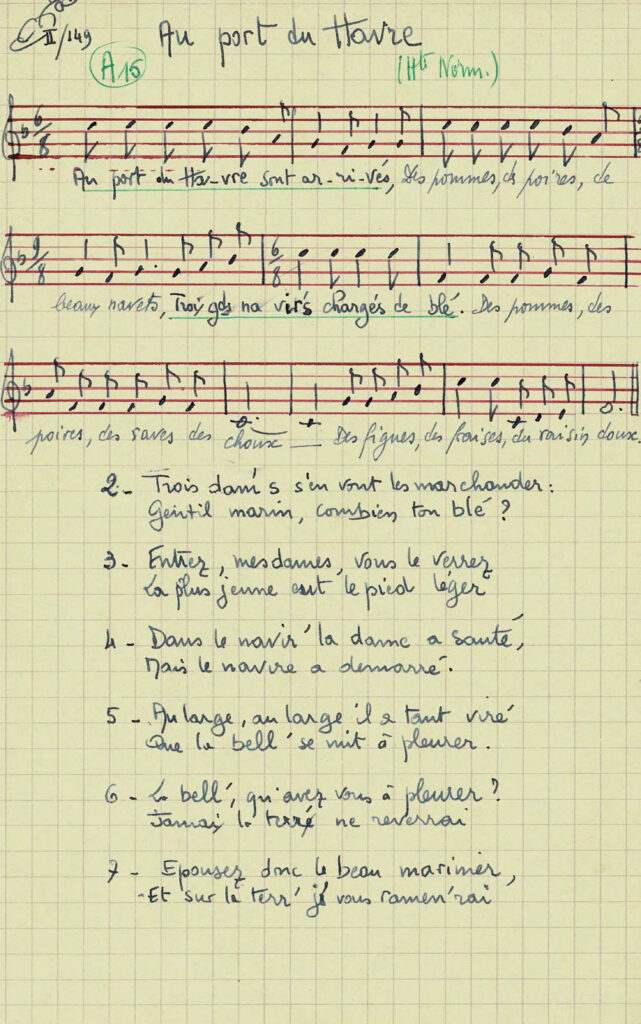 II/149
Au port du Havre
A15
(Hte Norm.)
6/8
Au port du Ha-vre sont ar-ri-vés, Des pommes, des poires, de
9/8
6/8
beaux navets, Trois gds na vir's chargés de blé. Des pommes, des
poires, des raves des choux — Des figues, des fraises, du raisin doux.
2 - Trois dam's s'en vont les marchander :
Gentil marin, combien ton blé ?
3 - Entrez, mesdames, vous le verrez
La plus jeune eut le pied léger
4 - Dans le navir' la dame a sauté,
Mais le navire a demarré.
5 - Au large, au large il a tant viré
Que la bell' se mit à pleurer.
6 - La bell', qu'avez vous à pleurer ?
Jamais la terre ne reverrai
7 - Epousez donc le beau marinier,
- Et sur la terr' je vous ramen'rai